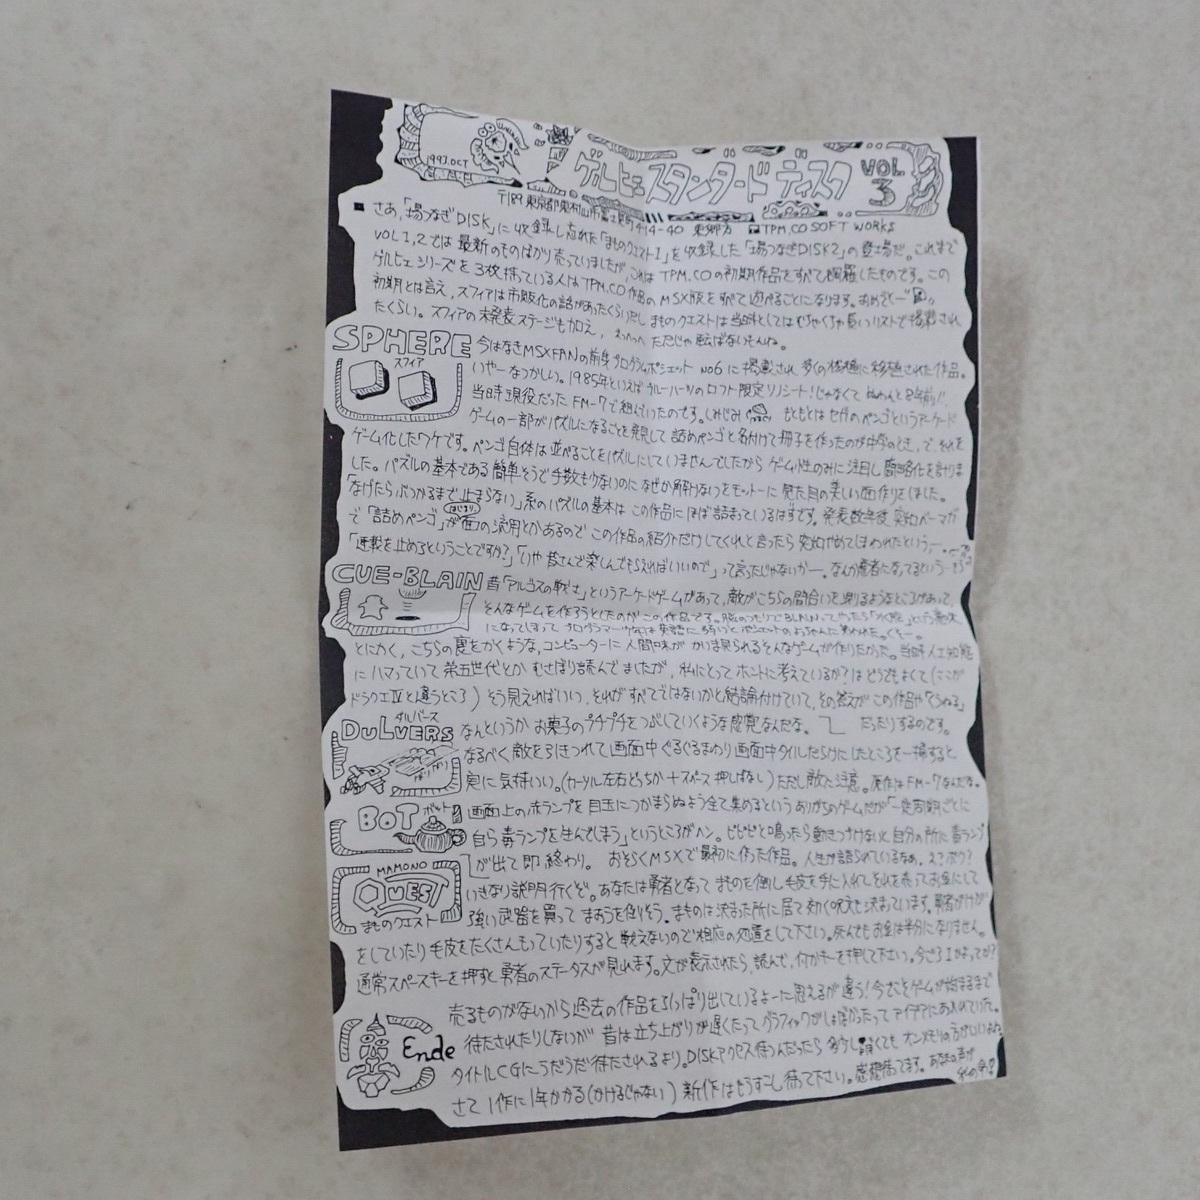 1993.OCT
ゲルヒェンスタンダードディスク VOL 3
〒189 東京都東村山市富士見町 4-14-40 東郷方 TPM.CO SOFT WORKS
■ さあ、「場つなぎDISK」に収録し忘れた「まものクエストI」を収録した「場つなぎDISK2」の登場だ。これまで
VOL1,2では最新のものばかり売っていましたが、これはTPM.COの初期作品をすべて網羅したものです。この
ゲルヒェンシリーズを3枚持っている人はTPM.CO作品のMSX版をすべて遊べることになります。おめでとー
初期とは言え、スフィアは市販化の話があったくらいだしまものクエストは当時としてはむちゃくちゃ長いリストで掲載され
たくらい。スフィアの未発表ステージも加え、ただじゃ転ばないもんね。
SPHERE
スフィア
今はなきMSX FANの前身プログラムポシェット No6 に掲載され多くの機種に移植された作品。
いやーなつかしい。1985年といえばブルーハーツのロフト限定ソノシート!じゃなくてなんと8年前!!
当時現役だったFM-7で組んでいたのです。しみじみ もともとはセガのペンゴというアーケード
ゲームの一部がパズルになることを発見して詰めペンゴと名付けて冊子を作ったのが中学のとき、で、それを
ゲーム化したワケです。ペンゴ自体は並べることをパズルにしていませんでしたからゲーム性のみに注目し簡略化を計りま
した。パズルの基本である簡単そうで手数も少ないのになぜか解けないをモットーに見た目の美しい面作りをしました。
「なげたらぶつかるまで止まらない」系のパズルの基本はこの作品にほぼ詰まっているはずです。発表数年後、突如ベーマガ
で「詰めペンゴ」がはじまり面の流用とかあるのでこの作品の紹介だけしてくれと言ったら突如やめてしまわれたという
「連載を止めろということですか?」「いや皆さんで楽しんでもらえればいいので」って言ったじゃないかー。なんか悪者になってるというー
CUE-BLAIN
昔「アルゴスの戦士」というアーケードゲームがあって、敵がこちらの間合いを計るようなところがあって、
そんなゲームを作ろうとしたのがこの作品です。脳のつもりでBLAINってやったら
になってしまって プログラマーつう奴は英語に弱いとポシェットの
とにかく、こちらの裏をかくような、コンピューターに人間味がかいま見られるそんなゲームが作りたかった。当時人工知能
にハマっていて第五世代とかむさぼり読んでましたが、私にとってホントに考えているか?はどうでもよくて(ここが
ドラクエIVと違うところ)そう見えればいい、それがすべてではないかと結論付けていて、その答えがこの作品や
だったりするのです。
DULVERS
ダルバース
なんというかお菓子のプチプチをつぶしていくような感覚なんだな。
なるべく敵を引きつれて画面中ぐるぐるまわり画面中タイルだらけにしたところを一掃すると
実に気持いい。(カーソル左右どっちか+スペース押しばなし)ただし敵に注意。原作はFM-7なんだな。
BOT
ボット
画面上の赤ランプを目玉につかまらぬよう全て集めるというありがちのゲームだが「一定周期ごとに
自ら毒ランプを生んでしまう」というところがヘン。ピピピと鳴ったら動きつづけないと自分の所に毒ランプ
が出て即終わり。おそらくMSXで最初に作った作品。人生が語られているなあ、え?ボク?
MAMONO
QUEST
まものクエスト
いきなり説明行くぞ。あなたは勇者となってまものを倒し毛皮を手に入れてそれを売ってお金にして
強い武器を買ってまおうを倒そう。まものは決まった所に居て効く呪文も決まっています。勇者がけが
をしていたり毛皮をたくさんもっていたりすると戦えないので相応の処置をして下さい。死んでもお金は半分になりません。
通常スペースキーを押すと勇者のステータスが見れます。文が表示されたら、読んで、何かキーを押して下さい。今ごろIかよってか?
売るものがないから過去の作品を引っぱり出しているよーに思えるが違う!今でこそゲームが始まるまで
待たされたりしないが 昔は立ち上がりが遅くたってグラフィックがしょぼかったってアイデアにあふれていた。
Ende
タイトルCGにうだうだ待たされるより。DISKアクセス待つんだったら多少しょぼくてもオンメモリの方がいいよね。
さて1作に1年かかる(かけるじゃない)新作はもうすこし待て下さい。感想待てます。あなたの声が
私の命!!